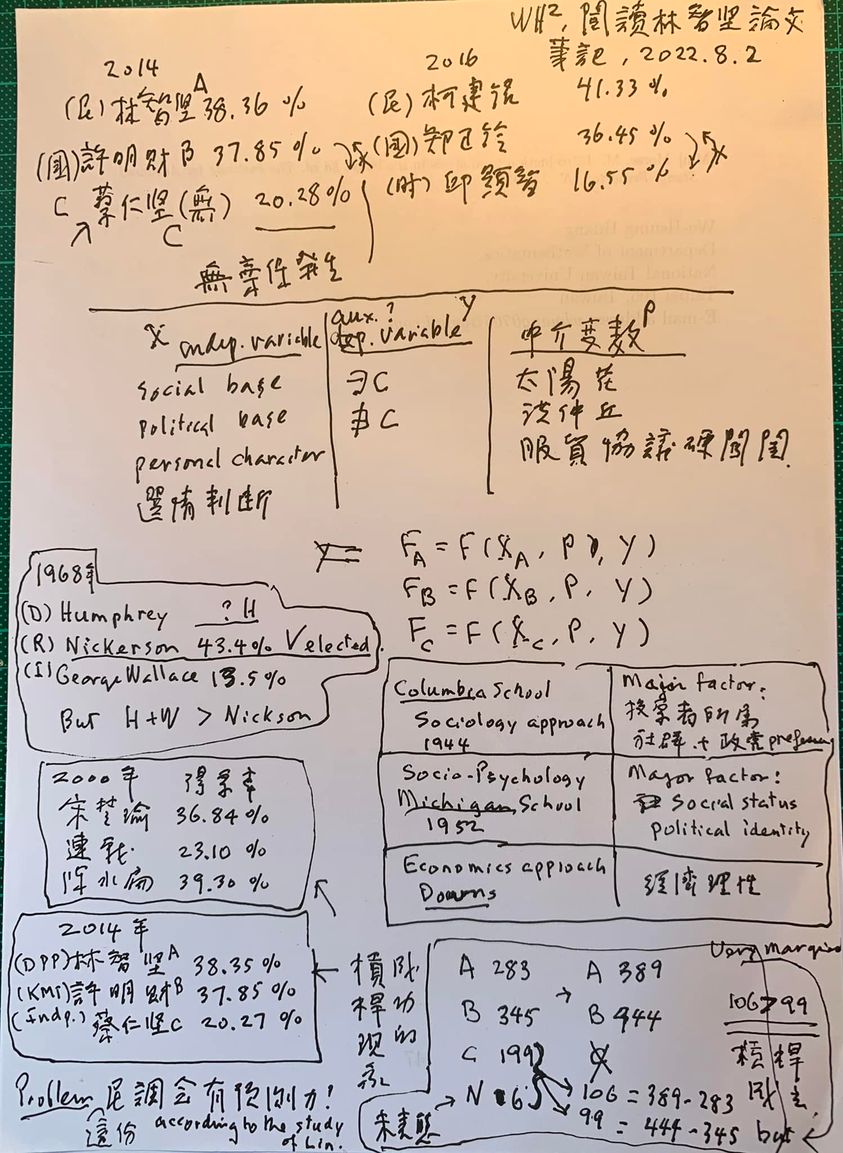 WH², 閱讀林智坚論文
筆記, 2022.8.2
2014
A
(民) 林智坚 38.36 %
(國) 許明財 B 37.85 %
C 蔡仁坚 (無) 20.28%
C
2016
(民) 柯建銘 41.33 %
(國) 鄭正鈐 36.45 %
(时) 邱顯智 16.55 %
無棄保發生
X indep. variable
social base
political base
personal character
選情判断
aux.? y
dep. variable
∋C
∌C
中介变数 P
太陽花
洪仲丘
服貿協議硬闖關
F_A = F(X_A, P, Y)
F_B = F(X_B, P, Y)
F_C = F(X_C, P, Y)
1968年
(D) Humphrey ? H
(R) Nickerson 43.4% V elected.
(I) George Wallace 13.5%
But H+W > Nickson
Columbia School
Sociology approach
1944
Major factor:
投票者所屬
社群 + 政党
Socio-Psychology
Michigan School
1952
Major factor:
Social status
political identity
Economics approach
Downs
經濟理性
2000年 得票率
宋楚瑜 36.84 %
連戰 23.10 %
陈水扁 39.30 %
2014年
(DPP) 林智坚 A 38.35 %
(KMT) 許明財 B 37.85 %
(Indp.) 蔡仁坚 C 20.27 %
槓桿現象
成功的
A 283 → A 389
B 345 B 444
C 199
N 16
106 = 389-283
99 = 444-345
未表態
Very marginal
106 > 99
槓桿
but
Problem 民調会有預測力!
這份 according to the study
of Lin.